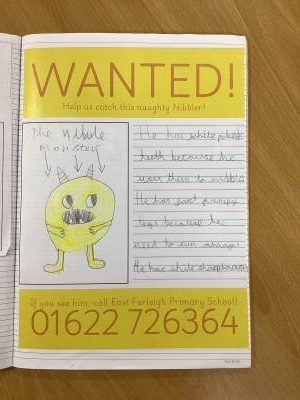 WANTED!
Help us catch this naughty Nibbler!
the Nibble
monster
He has white
teeth because he
uses them to
He has
legs because he
He has white
If you see him, call East Farleigh Primary School!
01622 726364